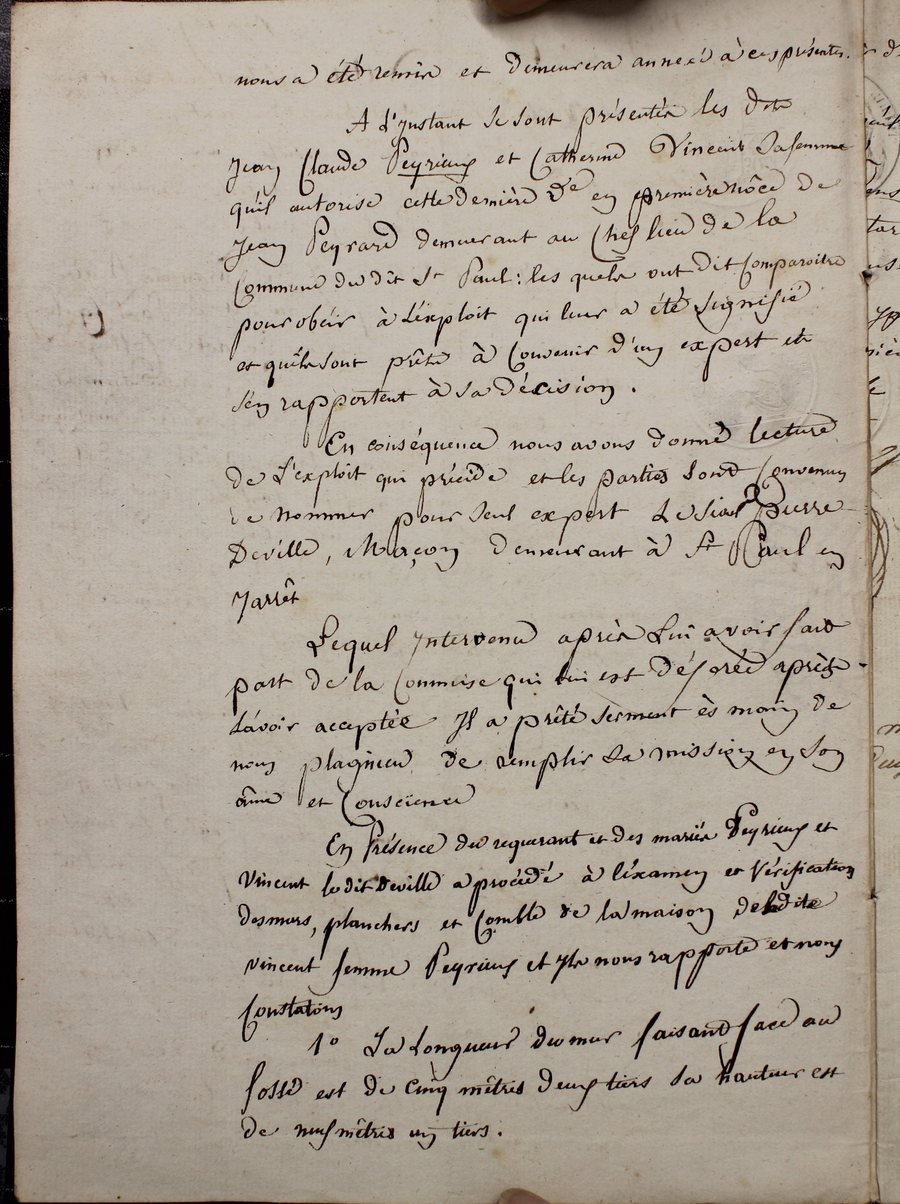 nous a été remise et demeurera annexé à ces présentes.
A L'Instant se sont présentés les dits
Jean Claude Peyrieux et Catherine Vincent sa femme
qu'il autorise cette dernière Ve en première nôce de
Jean Peyrard demeurant au Chef lieu de la
Commune du dit St Paul : les quels ont dit Comparoitre
pour obéir à L'éxploit qui leur a été signifié
et qu'ils sont prêts à Convenir d'un expert et
s'en rapportent à sa décision.
En conséquence nous avons donné lecture
de L'exploit qui précède et les parties sont Convenus
de nommer pour seul expert Le Sieur Pierre
Deville, Maçon demeurant à St Paul en
Jarrêt
Lequel Intervenu après Lui avoir fait
part de la Commise qui lui est déférée après
L'avoir acceptée Il a prêté serment ès mains de
nous plagnieu de remplir La mission en son
âme et Conscience
En Présence du requerant et des mariés Peyrieux et
Vincent le dit Deville a procédé à l'éxamen et Vérification
des murs, planchers et Comble de la maison de ladite
Vincent femme Peyrieux et Ils nous rapporte et nous
Constatons
1° La Longueur du mur faisant face au
fossé est de cinq mêtres deux tiers sa hauteur est
de neuf mêtres un tiers.